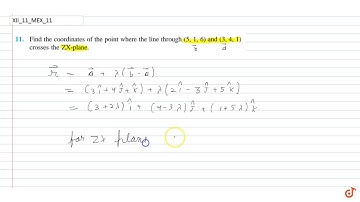 XII_11_MEX_11
11. Find the coordinates of the point where the line through (5, 1, 6) and (3, 4, 1)
crosses the ZX-plane.
b⃗ a⃗
r⃗ = a⃗ + λ(b⃗ - a⃗)
= (3î + 4ĵ + k̂) + λ(2î - 3ĵ + 5k̂)
= (3 + 2λ)î + (4 - 3λ)ĵ + (1 + 5λ)k̂
for ZX plane
doubtnut